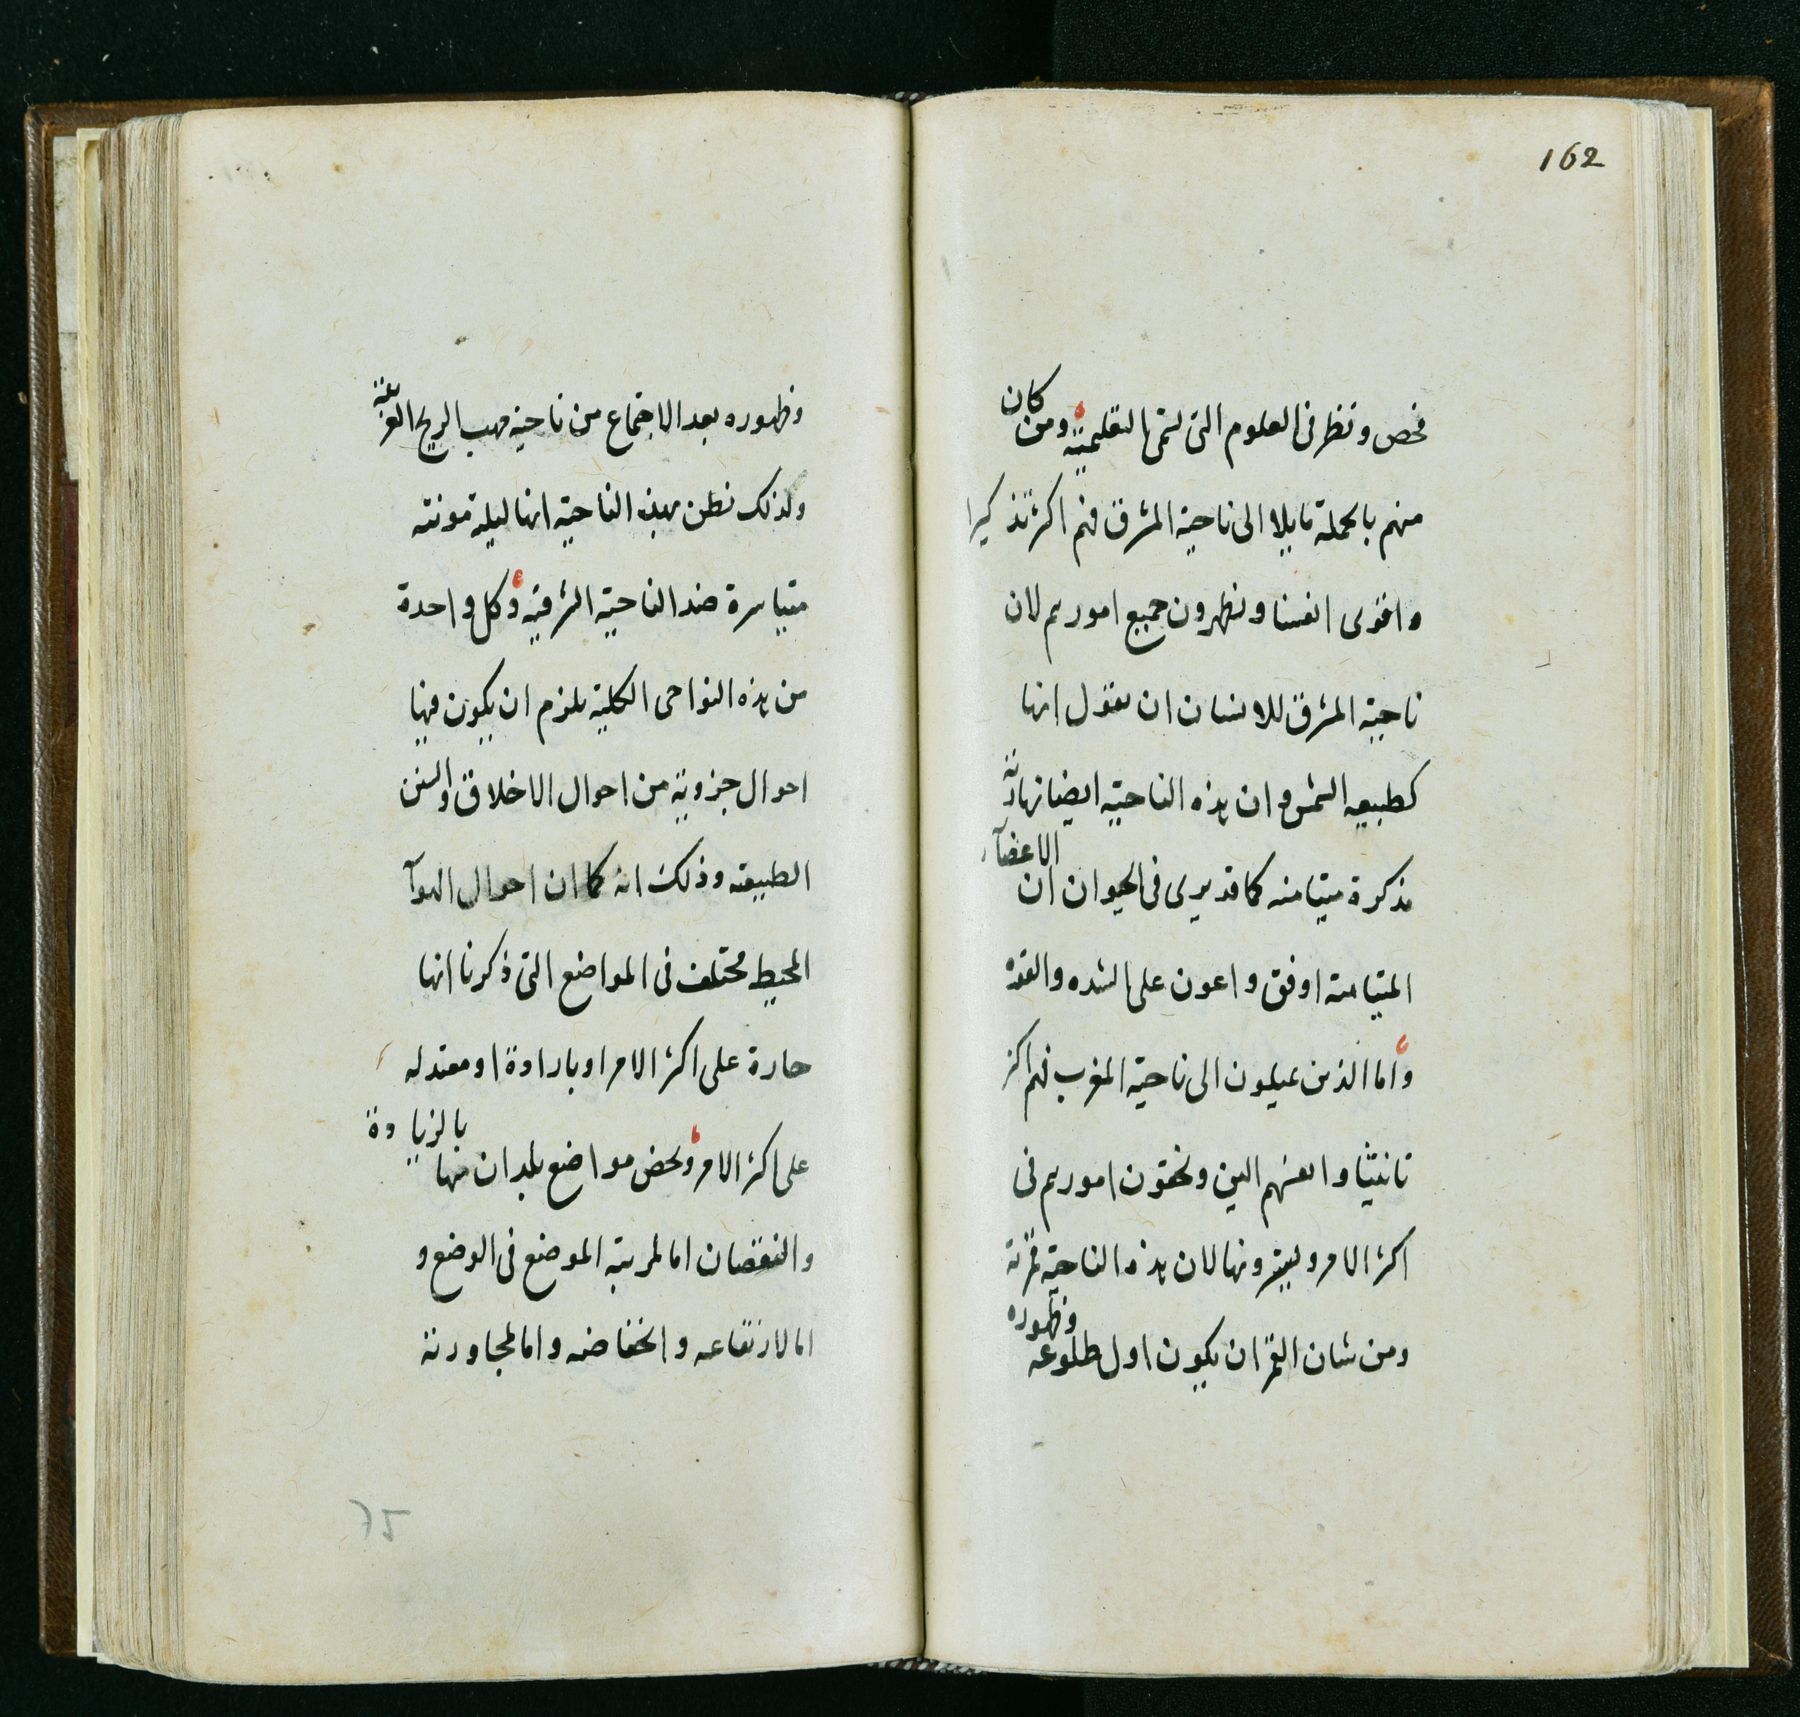 162
فحص ونظر فى العلوم التى تسمى التعليمية ومن كان
منهم بالجملة مايلا الى ناحية المشرق فهم اكثر تذكيرا
واقوى انفسا ويظهرون جميع امورهم لان
ناحية المشرق للانسان ان يقول انها
كطبيعه الشمس وان هذه الناحية ايضا نهارية
مذكرة متيامنه كما قد يرى فى الحيوان ان الاعضآء
المتيامنه اوفق واعون على الشده والقوة
وأما الذين يميلون الى ناحية المغرب فهم اكثر
تانيثا وانفسهم الين ويخفون امورهم فى
اكثر الامر ويسترونها لان هذه الناحية قمرية
ومن شان القمر ان يكون اول طلوعه وظهوره
وظهوره بعد الاجتماع من ناحية مهب الريح الغربية
ولذلك نظن بهذه الناحية انها ليلية مونثه
متياسرة ضد الناحية الشرقية وكل واحدة
من هذه النواحى الكلية يلزم ان يكون فيها
احوال جزوية من احوال الاخلاق والسنن
الطبيعته وذلك انه كما ان احوال الهوآ
المحيط مختلف فى المواضع التى ذكرنا انها
حارة على اكثر الامر او باردة او معتدله
على اكثر الامر ونخص مواضع بلدان منها بالزيادة
والنقصان اما لمرتبة الموضع فى الوضع و
اما لارتفاعه وانخفاضه واما لمجاورته